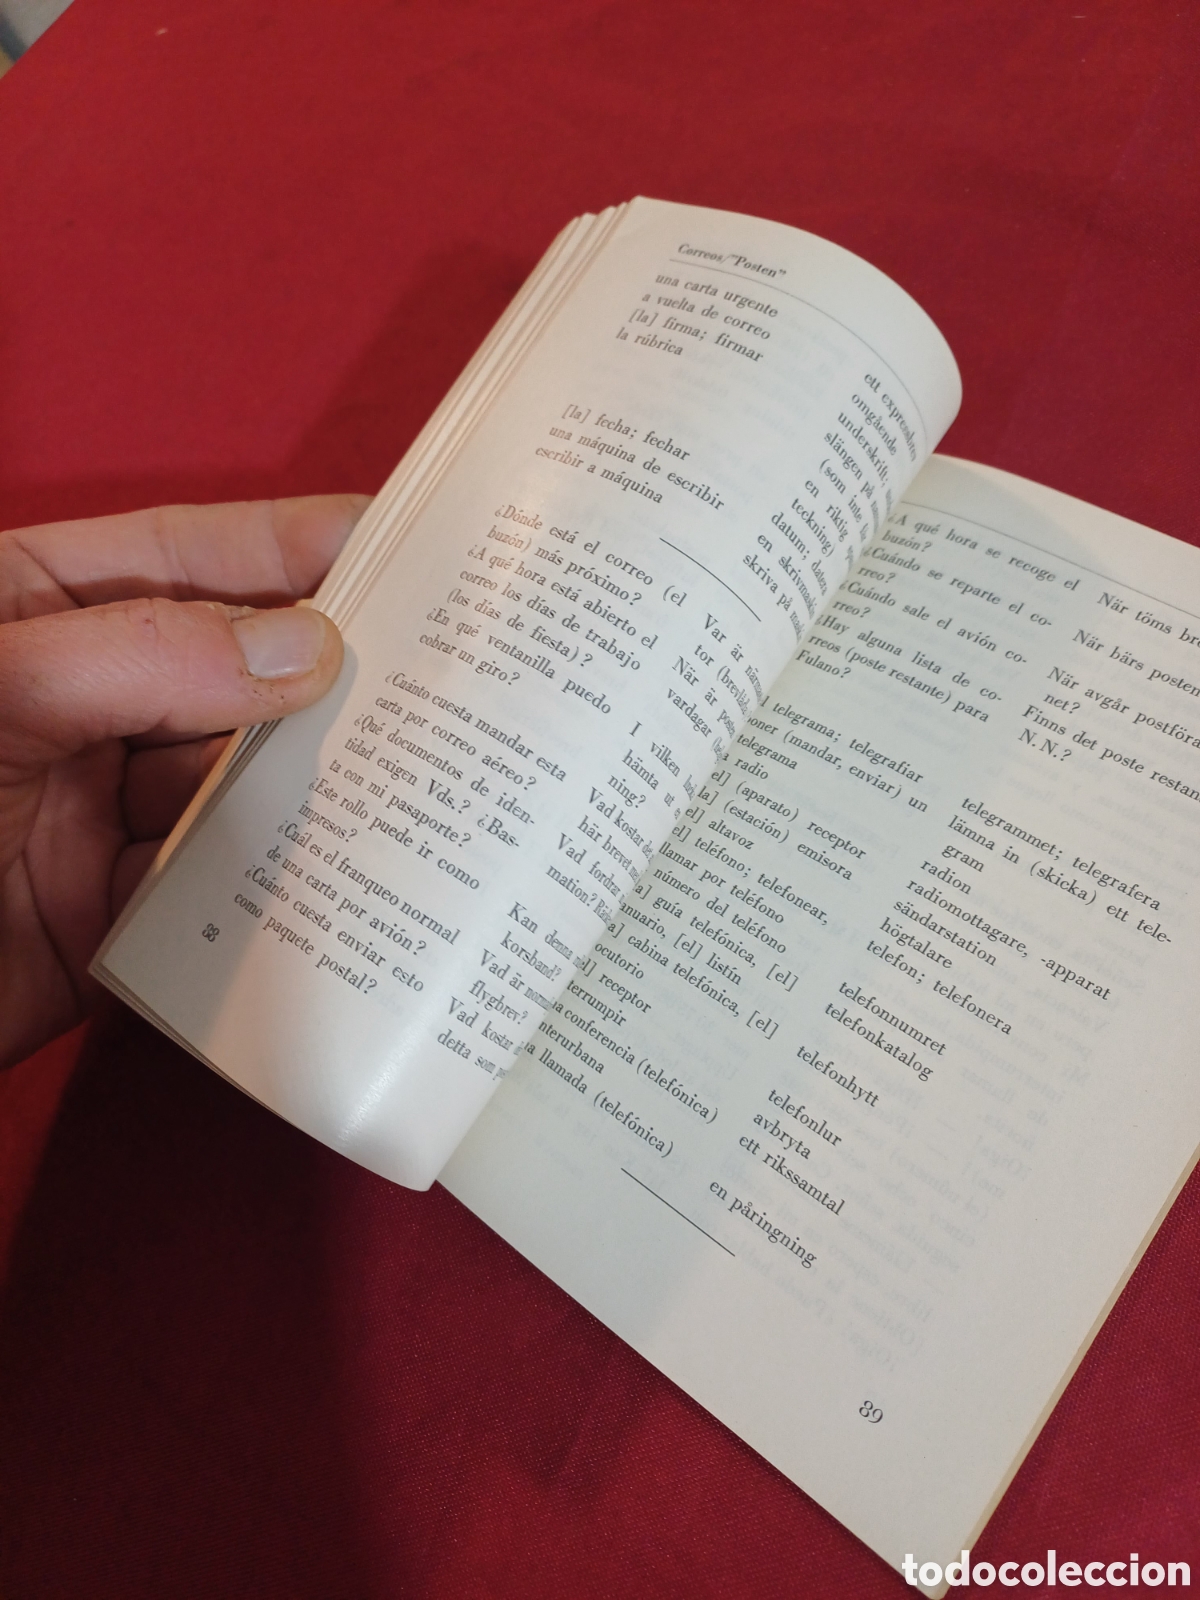 Correos/"Posten"
una carta urgente
a vuelta de correo
[la] firma; firmar
la rúbrica
[la] fecha; fechar
una máquina de escribir
escribir a máquina
ett expressbrev
omgående
underskrift;
slängen på
(som inte
en riktig
teckning)
datum; datera
en skrivmaskin
skriva på
¿Dónde está el correo (el
buzón) más próximo?
¿A qué hora está abierto el
correo los días de trabajo
(los días de fiesta)?
¿En qué ventanilla puedo
cobrar un giro?
¿Cuánto cuesta mandar esta
carta por correo aéreo?
¿Qué documentos de iden-
tidad exigen Vds.? ¿Bas-
ta con mi pasaporte?
¿Este rollo puede ir como
impresos?
¿Cuál es el franqueo normal
de una carta por avión?
¿Cuánto cuesta enviar esto
como paquete postal?
Var är
tor
När är
vardagar
I vilken
hämta ut
ning?
Vad kostar
här brevet
Vad fordrar
mation?
Kan denna
korsband?
Vad är
flygbrev?
Vad kostar
detta som
88
¿A qué hora se recoge el
buzón?
¿Cuándo se reparte el co-
rreo?
¿Cuándo sale el avión co-
rreo?
¿Hay alguna lista de co-
rreos (poste restante) para
Fulano?
När töms
När bärs posten
När avgår
net?
Finns det poste
N.N.?
telegrama; telegrafiar
(mandar, enviar) un
telegrama
radio
(aparato) receptor
(estación) emisora
altavoz
teléfono; telefonear,
llamar por teléfono
número del teléfono
guía telefónica, [el]
anuario, [el] listín
cabina telefónica, [el]
locutorio
receptor
conferencia (telefónica)
interurbana
llamada (telefónica)
telegrammet; telegrafera
lämna in (skicka) ett tele-
gram
radion
radiomottagare, -apparat
sändarstation
högtalare
telefon; telefonera
telefonnumret
telefonkatalog
telefonhytt
telefonlur
avbryta
ett rikssamtal
en påringning
89
todocoleccion